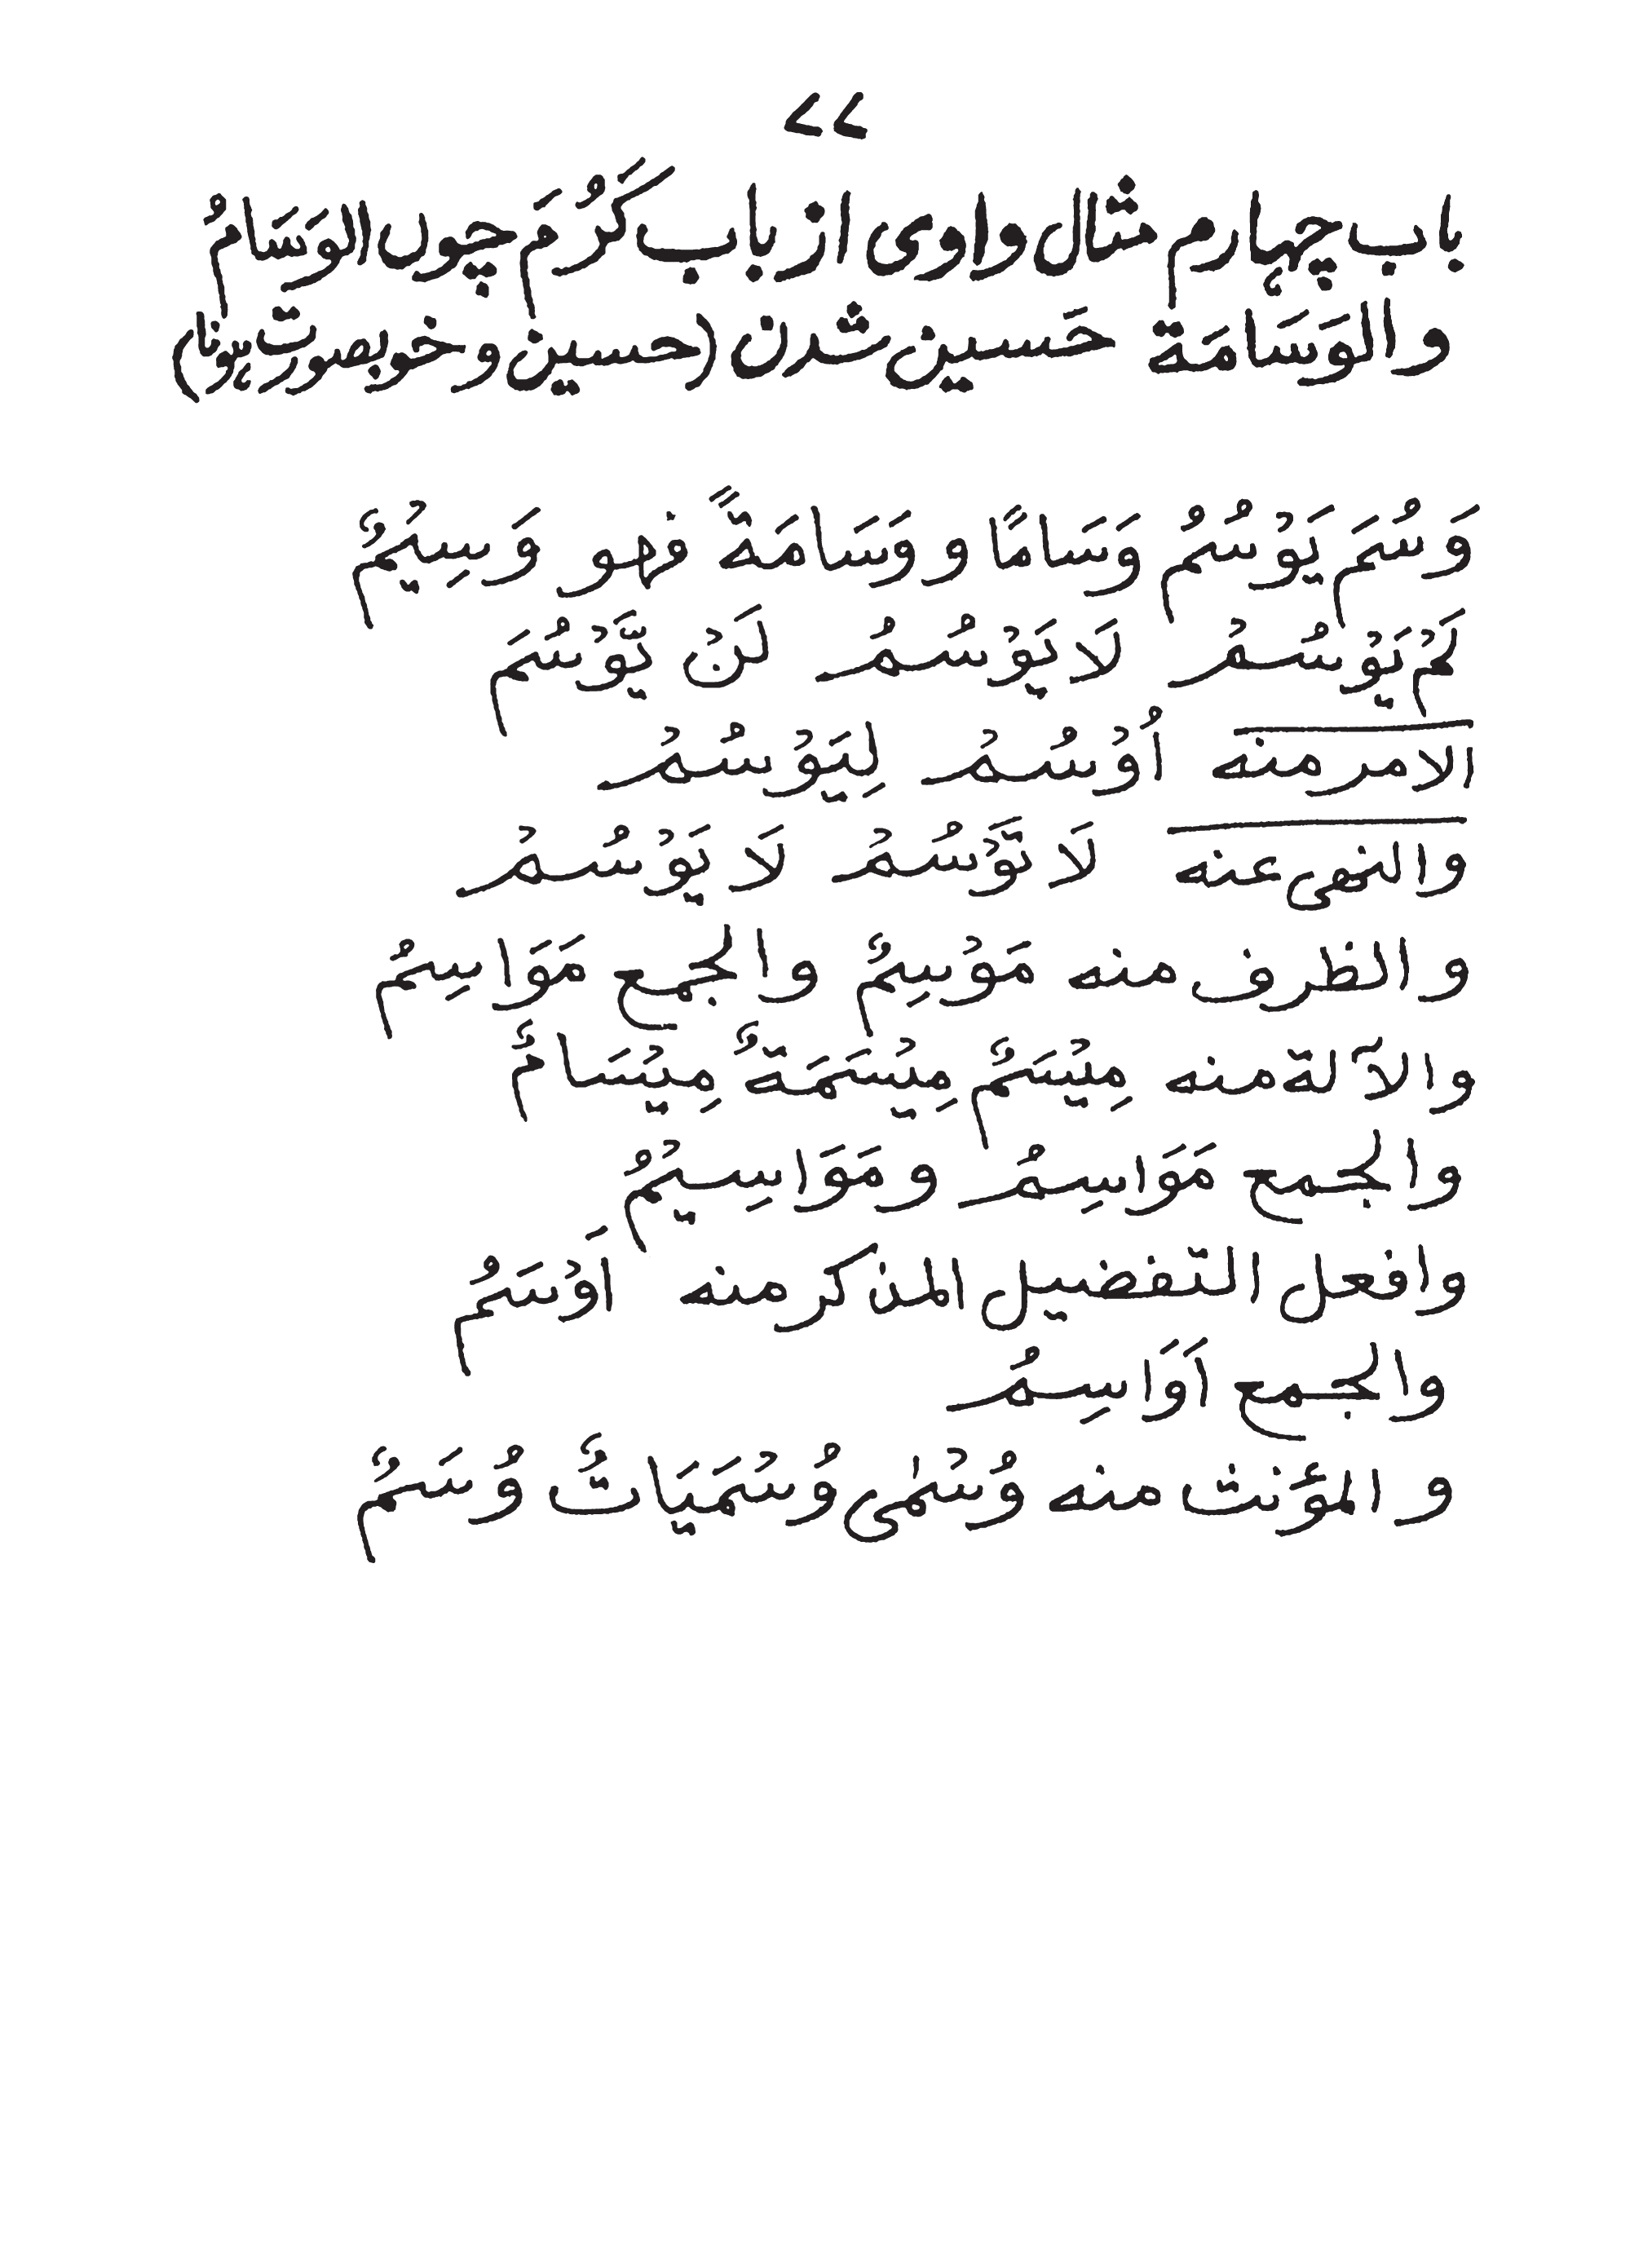 ۷۷
باب چہارم مثال واوی از باب کَرُمَ چوں الوَسَامُ
والوَسَامَة حَسین شدن (حسین و خوبصورت ہونا)
وَسُمَ يَوْسُمُ وَسَامًا و وَسَامَةً فهو وَسِيْمٌ
لَمْ يَوْسُمْ لَا يَوْسُمُ لَنْ يَّوْسُمَ
الامر منه اُوْسُمْ لِيَوْسُمْ
والنهى عنه لَا تَوْسُمْ لَا يَوْسُمْ
و الظرف منه مَوْسِمٌ والجمع مَوَاسِمُ
والآلة منه مِيْسَمٌ مِيْسَمَةٌ مِيْسَامٌ
والجمع مَوَاسِمُ و مَوَاسِيْمُ
وافعل التفضيل المذكر منه اَوْسَمُ
والجمع اَوَاسِمُ
و المؤنث منه وُسْمٰى وُسْمَيَاتٌ وُسَمٌ